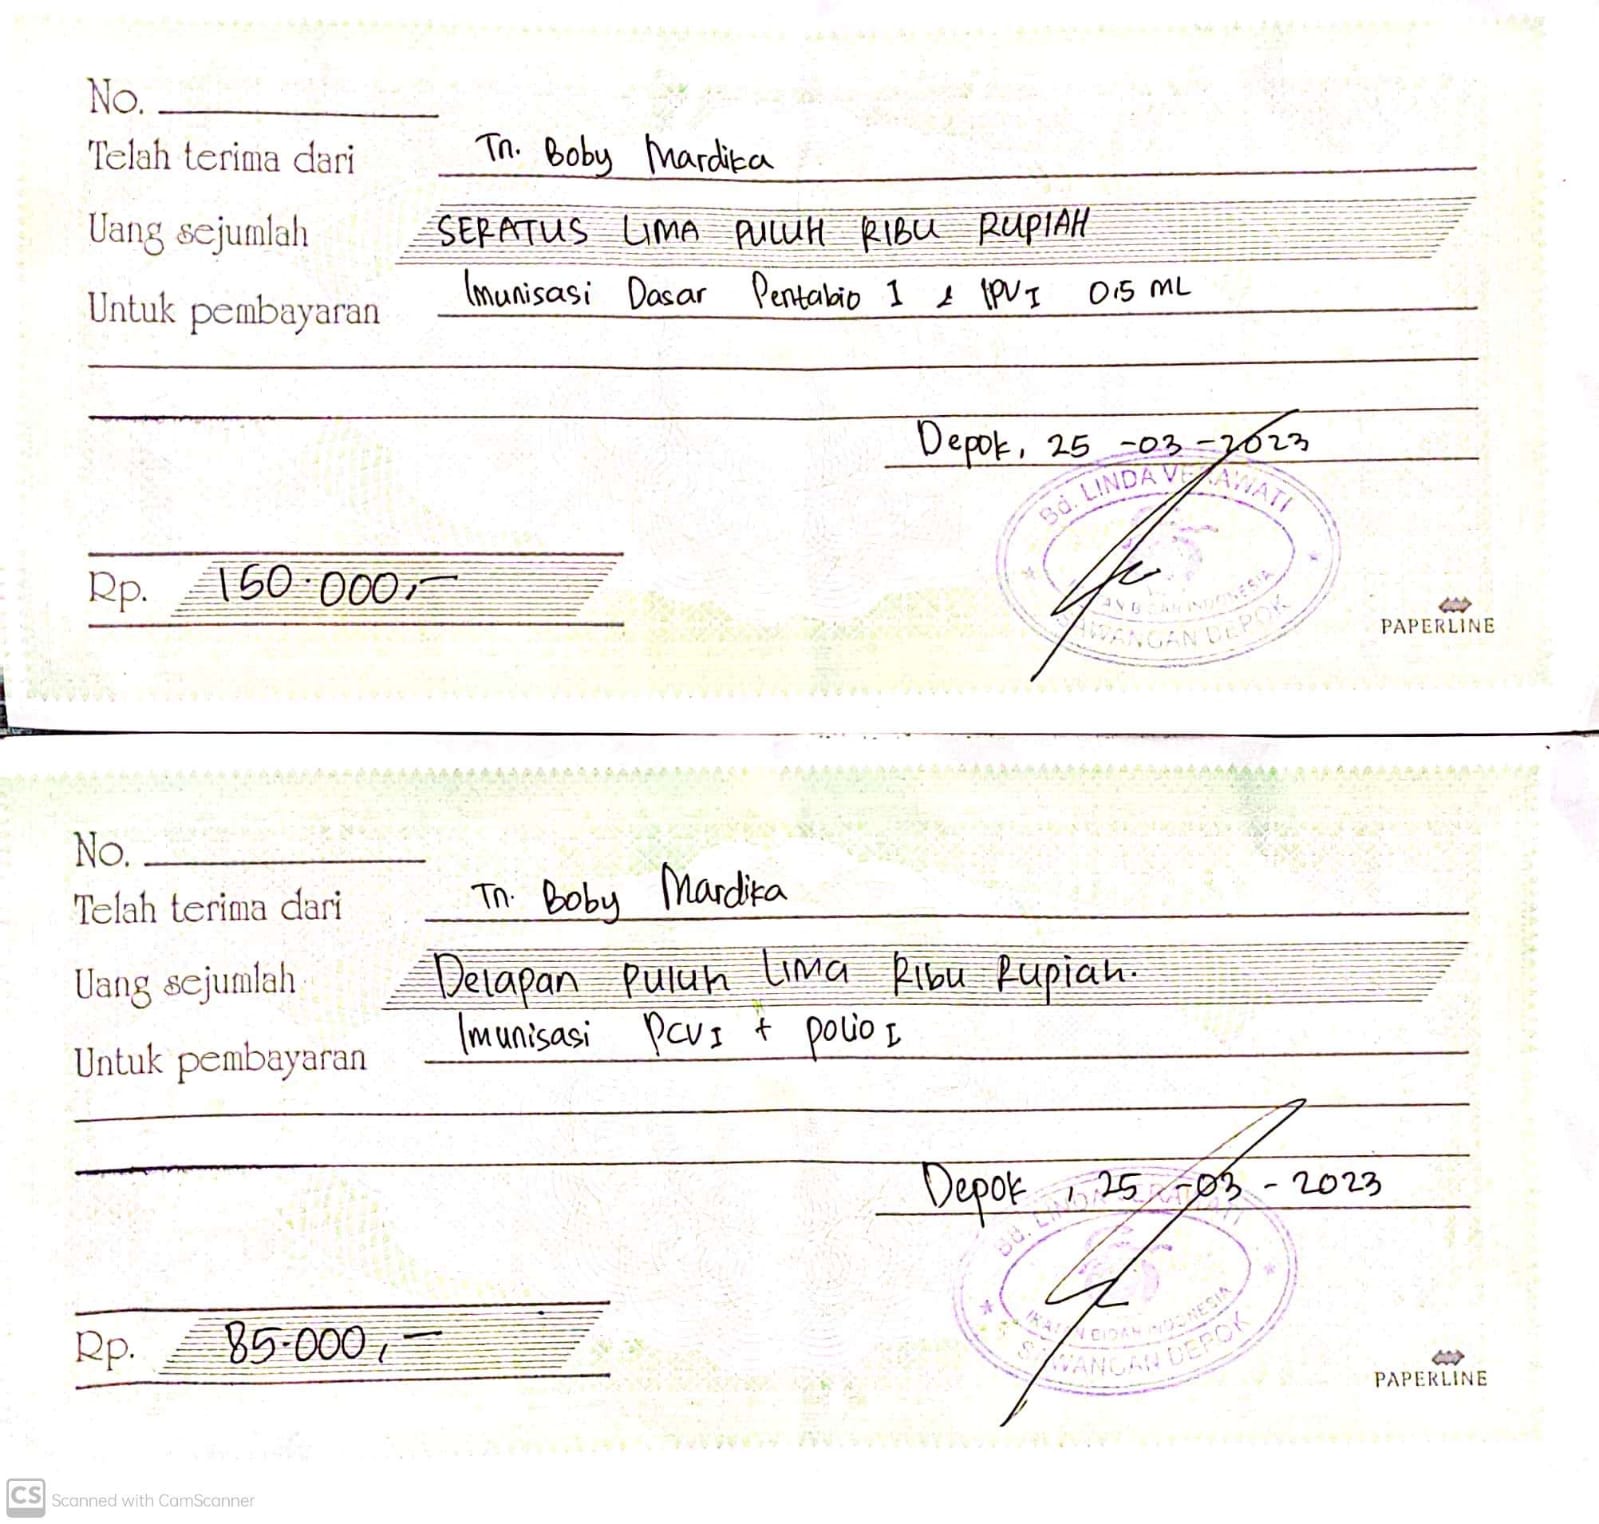 No.
Telah terima dari Tn. Boby Mardika
Uang sejumlah SERATUS LIMA PULUH RIBU RUPIAH
Untuk pembayaran Imunisasi Dasar Pentabio 1 & IPV I 0,5 ML
Depok, 25 -03-2023
Bd. LINDA VERAWATI
IKATAN BIDAN INDONESIA
SAWANGAN DEPOK
Rp. 150.000,-
PAPERLINE
No.
Telah terima dari Tn. Boby Mardika
Uang sejumlah Delapan puluh lima Ribu Rupiah.
Untuk pembayaran Imunisasi PCV I + polio I
Depok, 25 -03 - 2023
Bd. LINDA VERAWATI
IKATAN BIDAN INDONESIA
SAWANGAN DEPOK
Rp. 85.000,-
PAPERLINE
CS Scanned with CamScanner